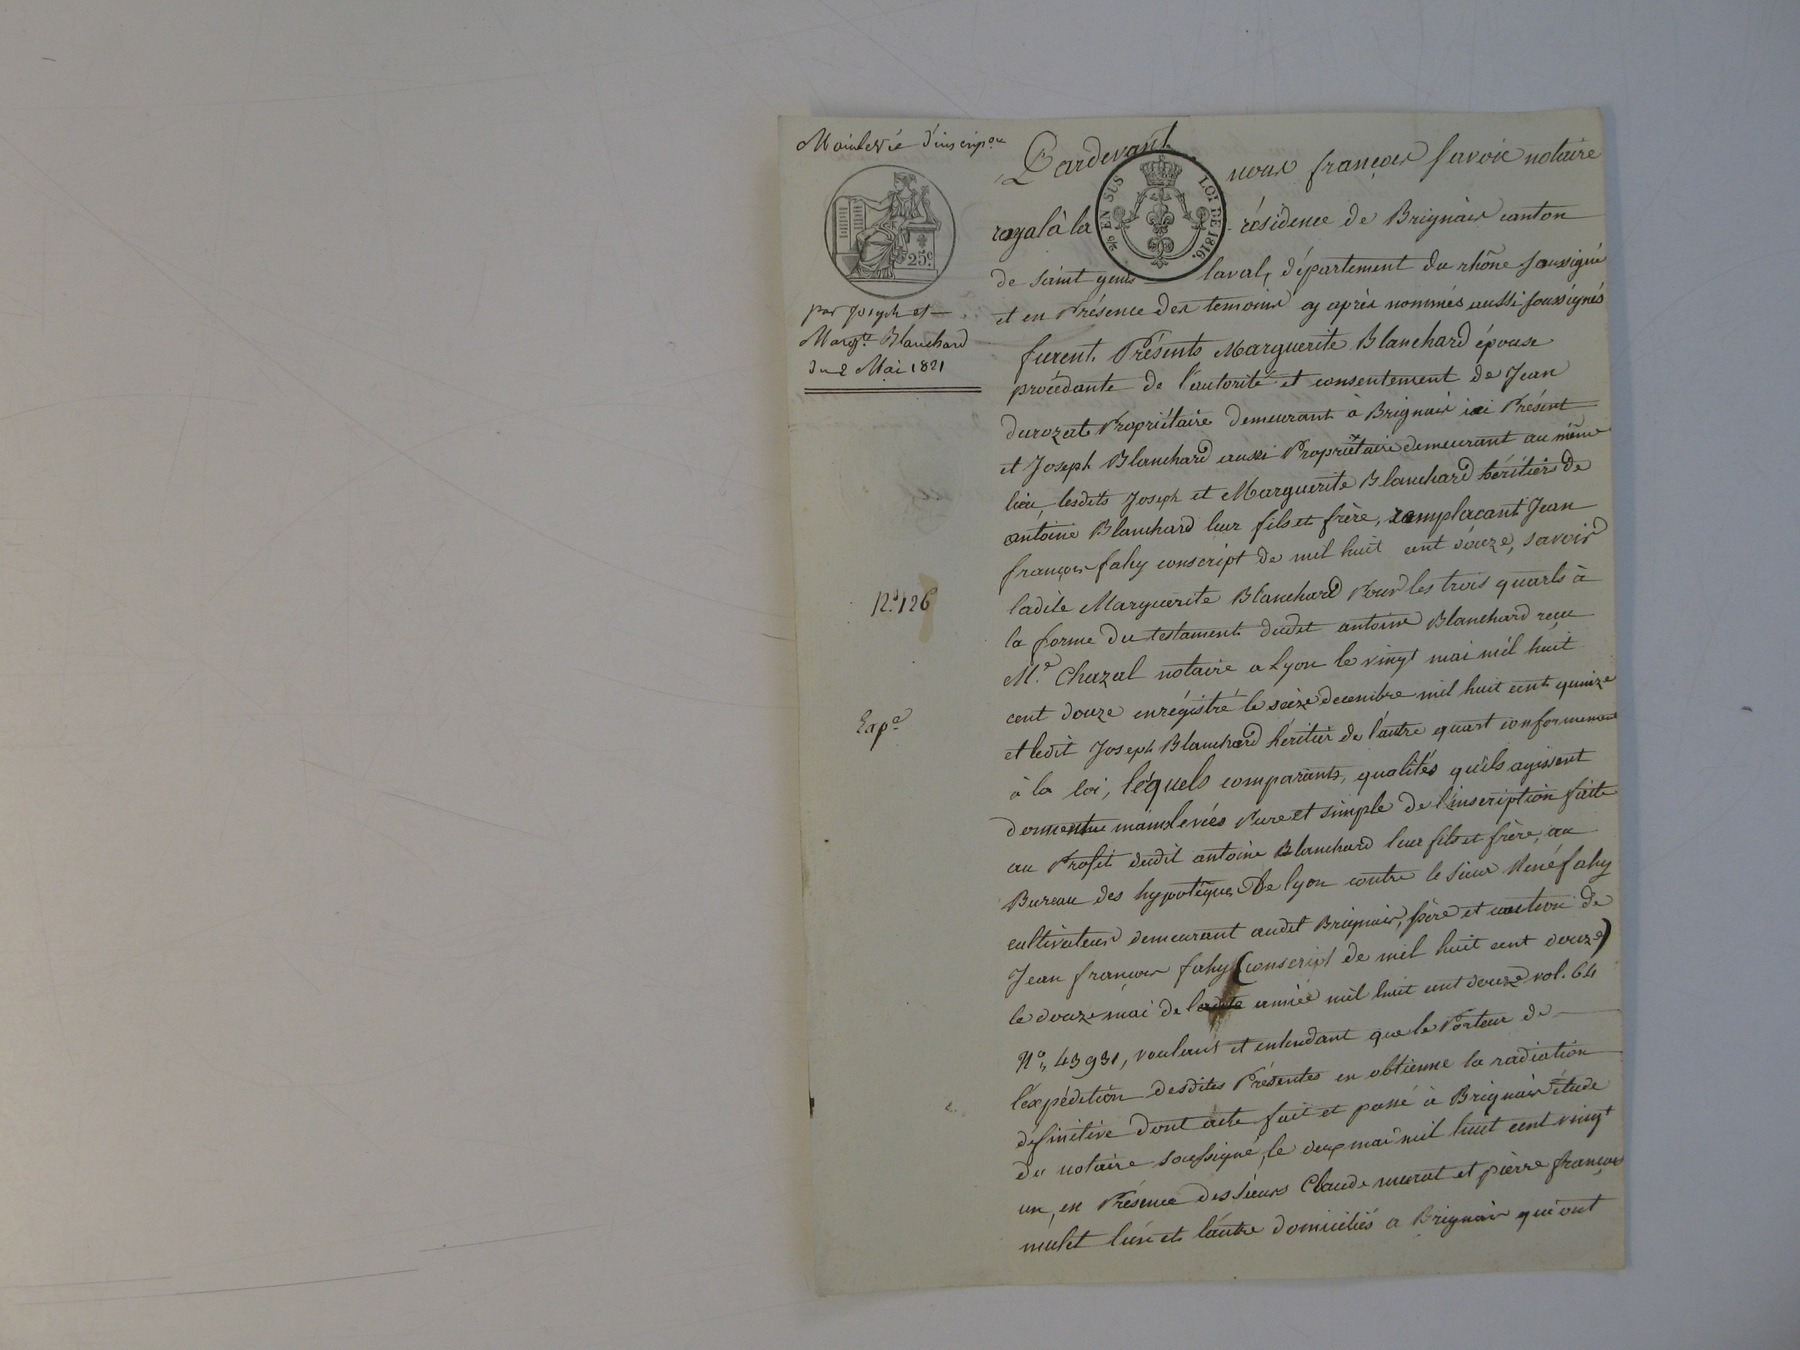 Mainlevée d'inscrip.on
25c.
par Joseph et
Marg.te Blanchard
du 2 Mai 1821
N.o 126
Exp.é
Pardevant nous françois savoie notaire
EN SUS LOI DE 1816.
royal à la résidence de Brignais canton
de saint genis laval, département du rhône soussigné
et en Présence des temoins cy après nommés aussi soussignés
furent Présents Marguerite Blanchard épouse
procédante de l'autorité et consentement de Jean
durozat Propriétaire demeurant à Brignais ici Présent
et Joseph Blanchard aussi Propriétaire demeurant au même
lieu, lesdits Joseph et Marguerite Blanchard héritiers de
antoine Blanchard leur fils et frère, remplaçant Jean
françois fahy conscript de mil huit cent douze, savoir
ladite Marguerite Blanchard Pour les trois quarts à
la forme du testament dudit antoine Blanchard reçu
M.e Chazal notaire a Lyon le vingt mai mil huit
cent douze enrégistré le seize decembre mil huit cent quinze
et ledit Joseph Blanchard héritier de l'autre quart conformement
à la loi, léquels comparants, qualités qu'ils agissent
donnent mainlevées Pure et simple de l'inscription faite
au Profit dudit antoine Blanchard leur fils et frère, au
Bureau des hypotèques De lyon contre le sieur René fahy
cultivateur demeurant audit Brignais, père et caution de
Jean françois fahy (conscript de mil huit cent douze)
le douze mai de ladite année mil huit cent douze vol. 64
N.o 43931, voulant et entendant que le Porteur de
l'expédition desdites Présentes en obtienne la radiation
définitive dont acte fait et passé à Brignais étude
du notaire soussigné, le deux mai mil huit cent vingt
un, en Présence des sieurs Claude murat et pierre françois
mulet l'un et l'autre domiciliés a Brignais qui ont